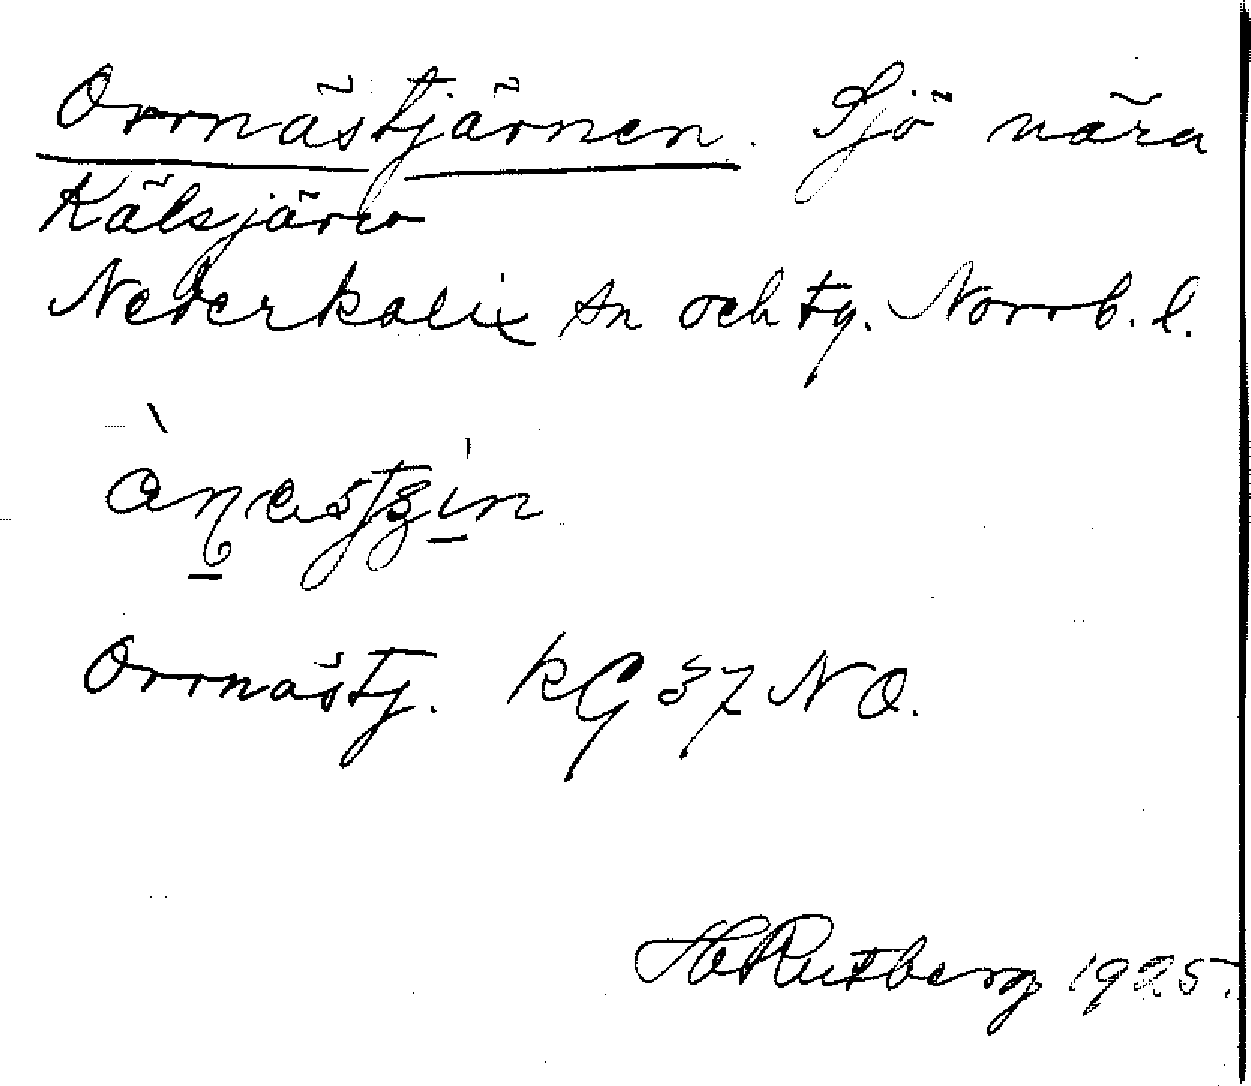 Orrnästjärnen. Sjö nära
Kälsjärv
Nederkalix sn och tg. Norrb. l.
Orrnästj. kG 37 NO.
H Rutberg 1925.